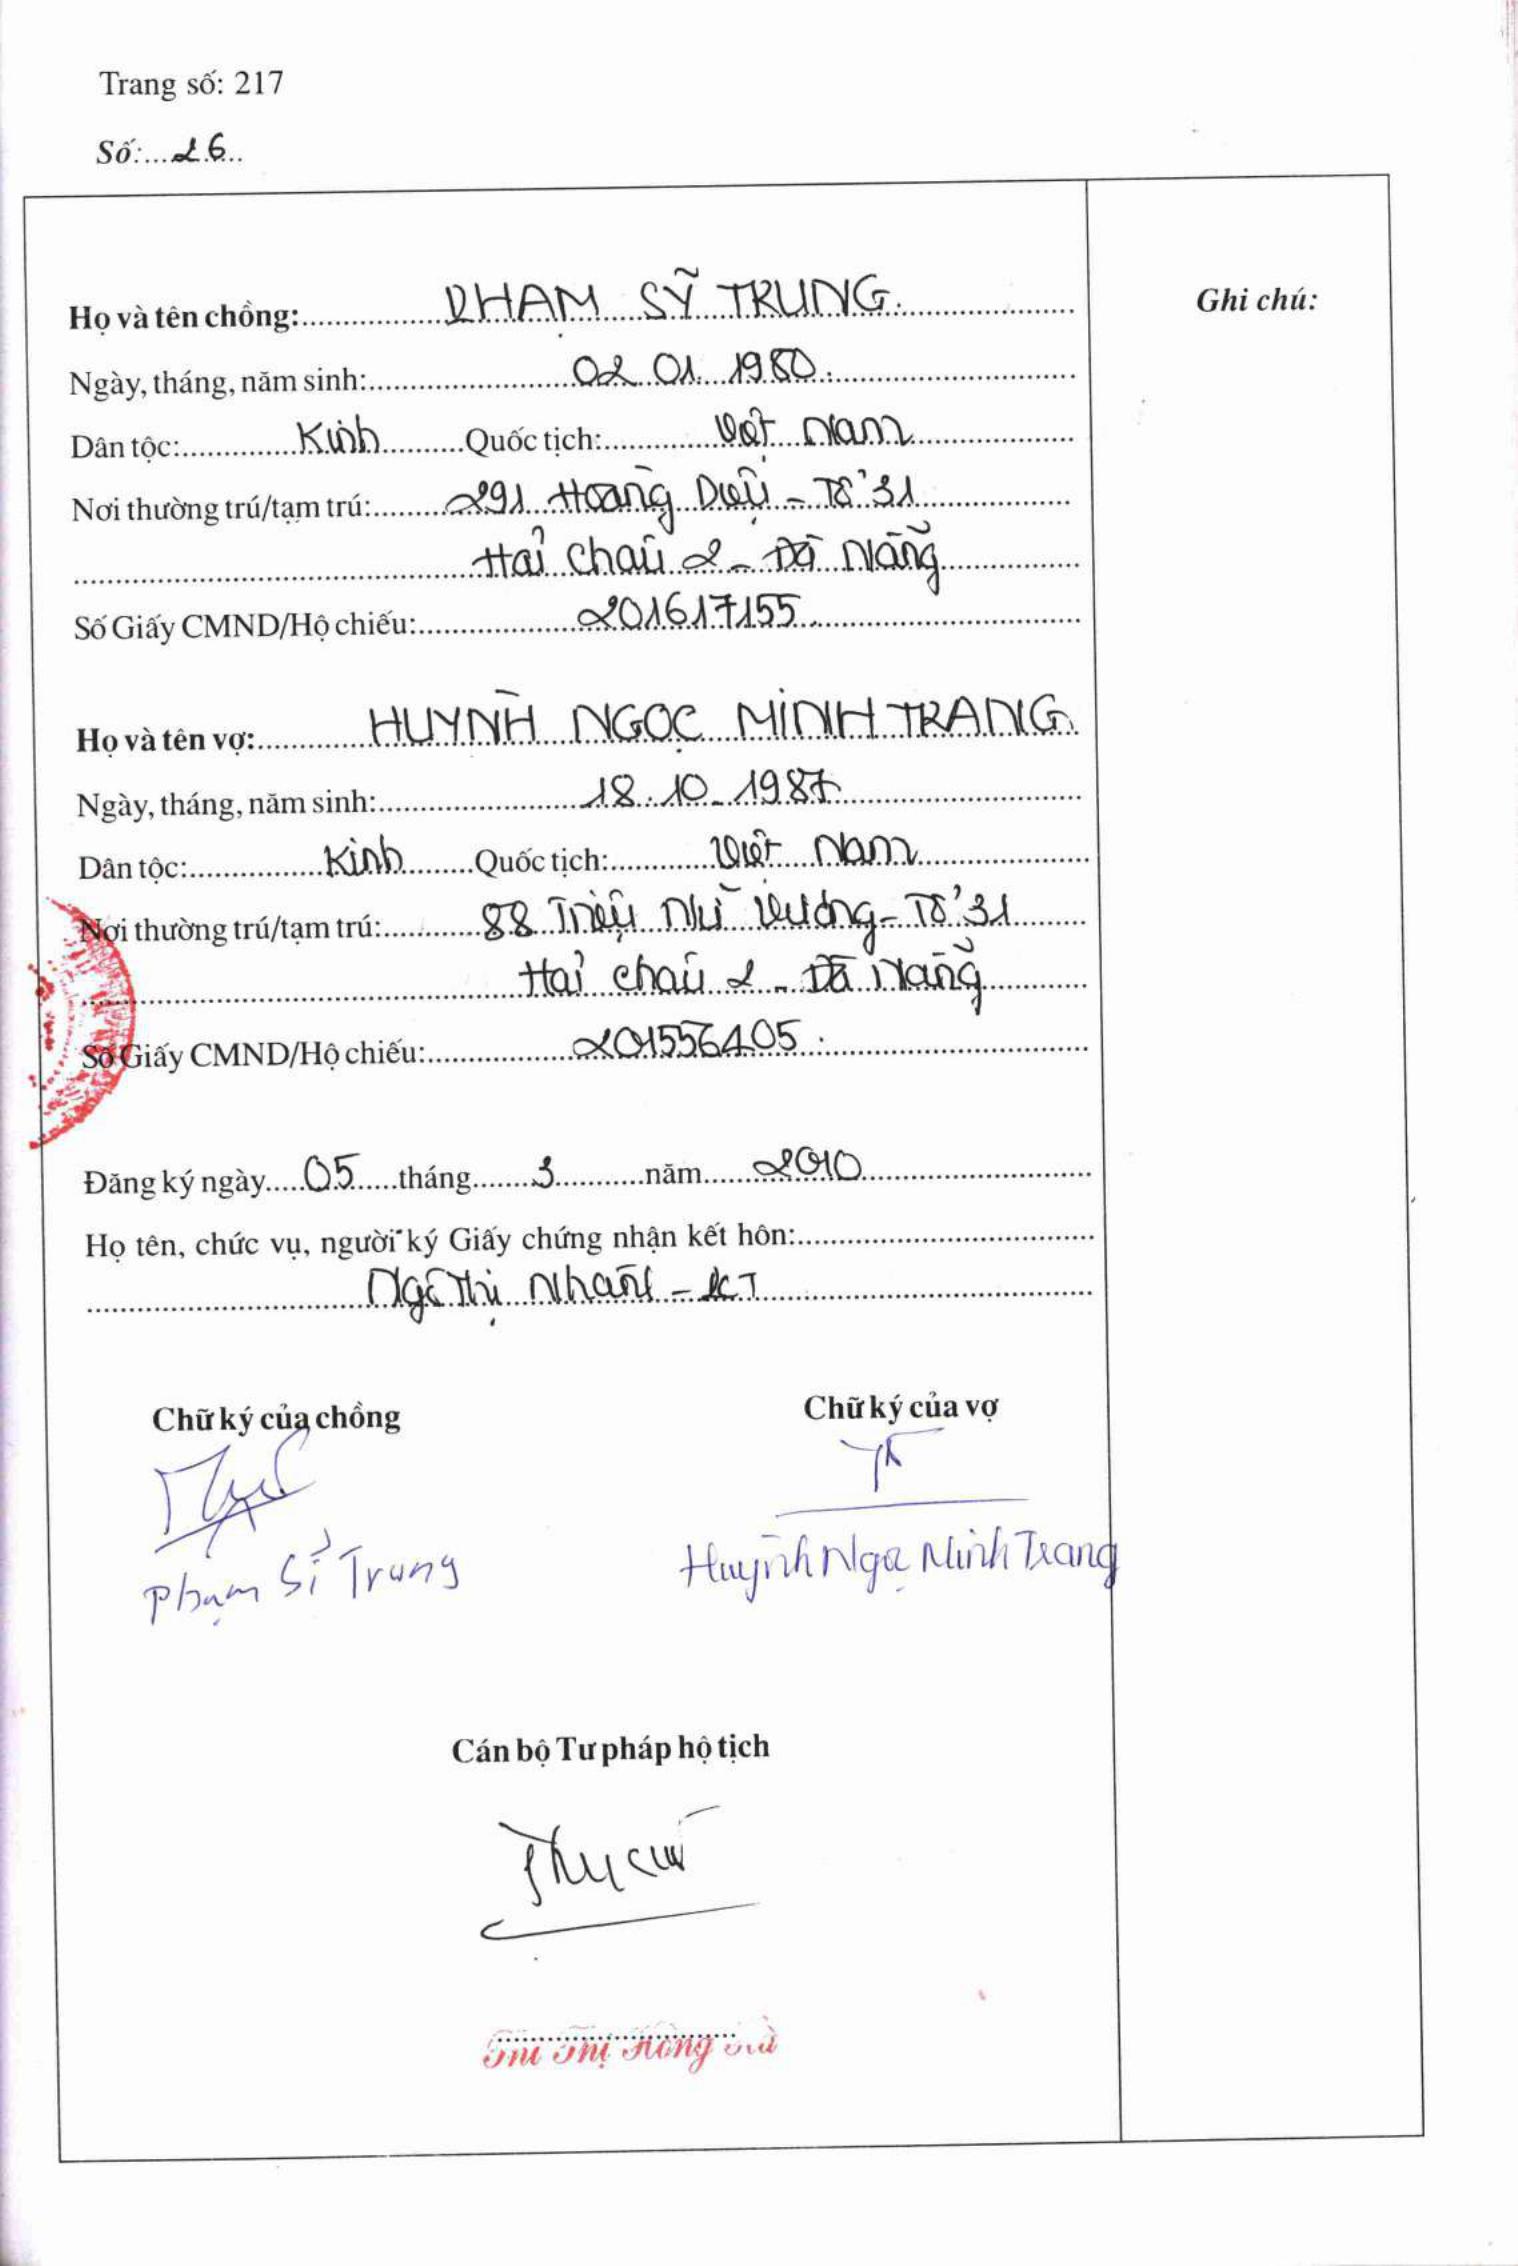 Trang số: 217
Số: 26
Ghi chú:
Họ và tên chồng: PHẠM SỸ TRUNG
Ngày, tháng, năm sinh: 02.01.1980
Dân tộc: Kinh Quốc tịch: Việt Nam
Nơi thường trú/tạm trú: 291 Hoàng Diệu - Tổ 31
Hải Châu 2 - Đà Nẵng
Số Giấy CMND/Hộ chiếu: 201617155
Họ và tên vợ: HUỲNH NGỌC MINH TRANG
Ngày, tháng, năm sinh: 18.10.1987
Dân tộc: Kinh Quốc tịch: Việt Nam
Nơi thường trú/tạm trú: 88 Triệu Nữ Vương - Tổ 31
Hải Châu 2 - Đà Nẵng
Số Giấy CMND/Hộ chiếu: 201556405
Đăng ký ngày 05 tháng 3 năm 2010
Họ tên, chức vụ, người ký Giấy chứng nhận kết hôn:
Ngô Thị Nhàn - CT
Chữ ký của chồng Chữ ký của vợ
Phạm Sĩ Trung Huỳnh Ngọc Minh Trang
Cán bộ Tư pháp hộ tịch
Thị Hồng